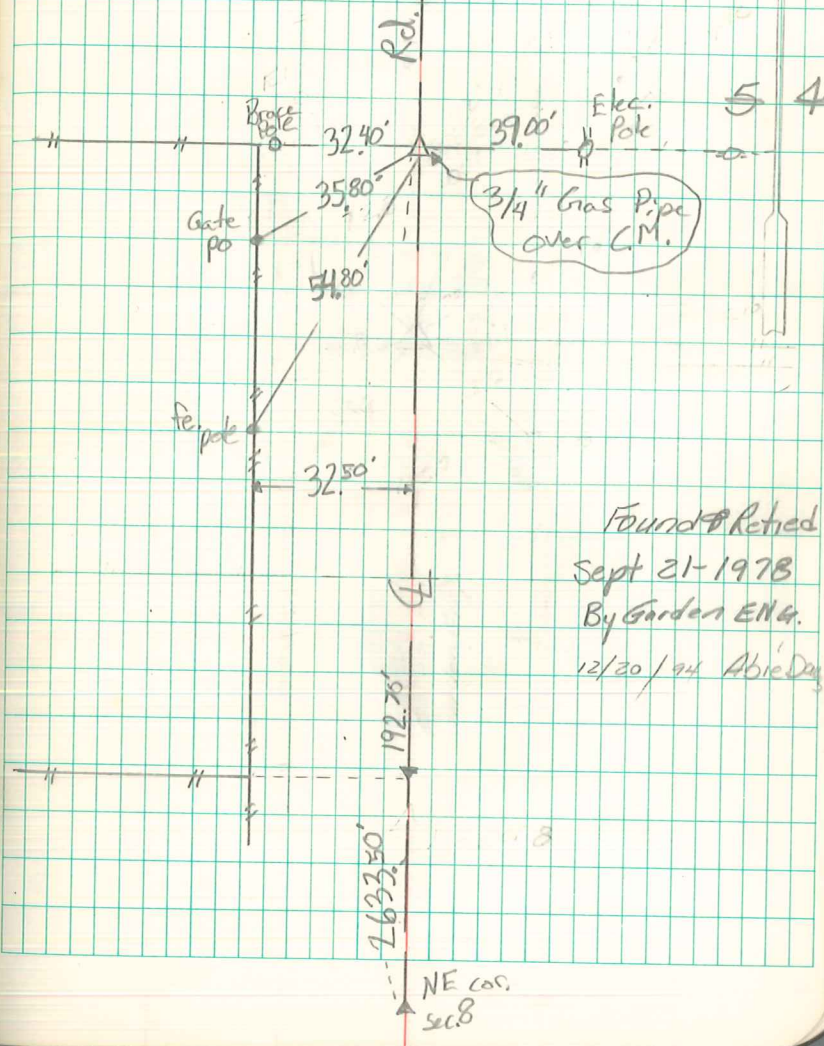 Rd.
5 4
Brace
Pole
32.40'
39.00'
Elec.
Pole
35.80'
3/4" Gas Pipe
over C.M.
Gate
po
54.80'
fe. pole
32.50'
Found & Retied
Sept 21-1978
By Garden ENG.
12/20/94 Abie
℄
192.70'
8
2633.50'
NE cor.
sec. 8